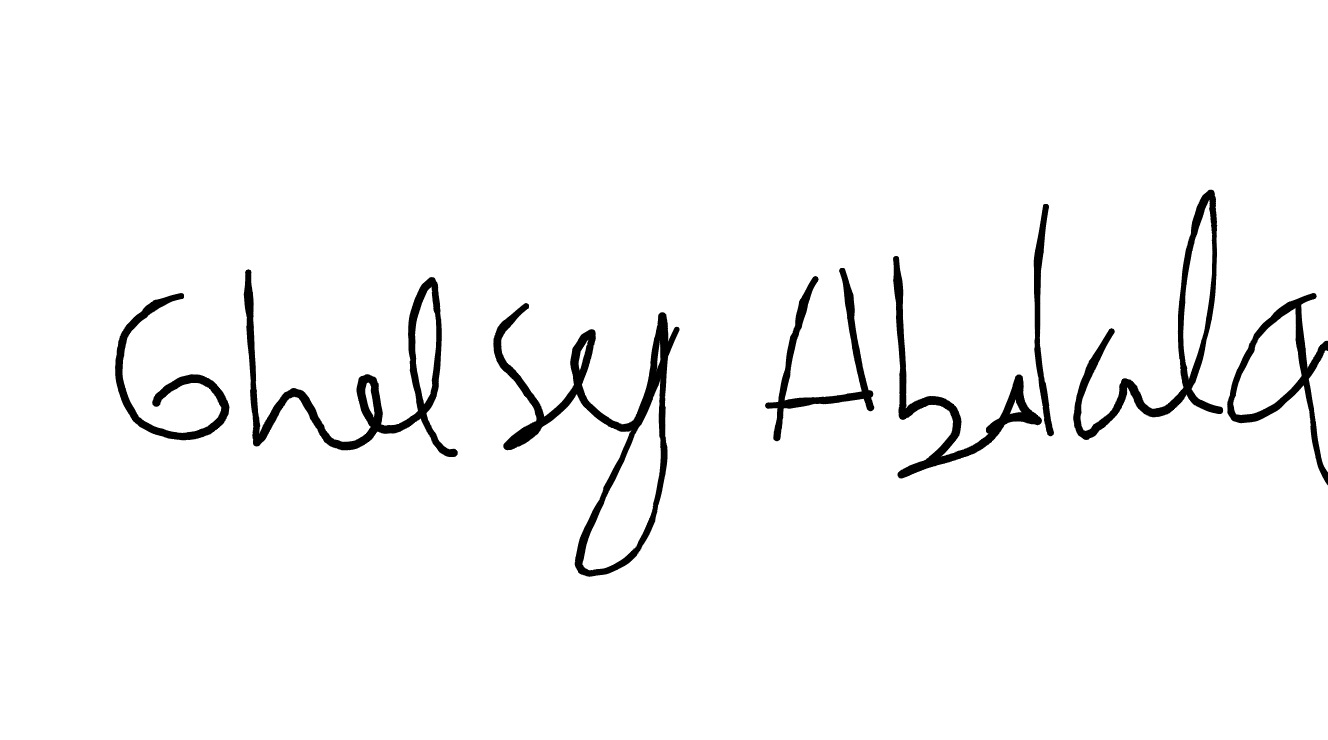 Ghelsy Abdala